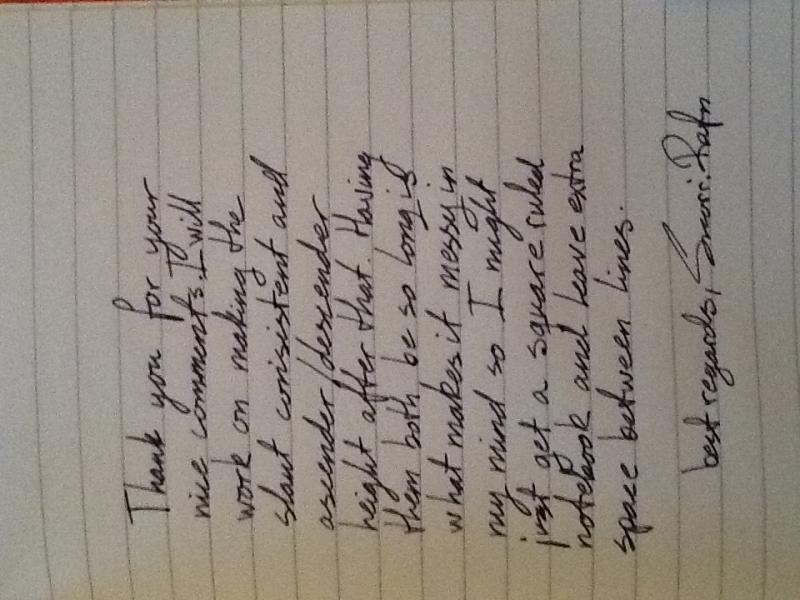 Thank you for your
nice comments. I will
work on making the
slant consistent and
ascender/descender
height after that. Having
them both be so long is
what makes it messy in
my mind so I might
just get a square ruled
notebook and leave extra
space between lines.
best regards, Snorri Rafn